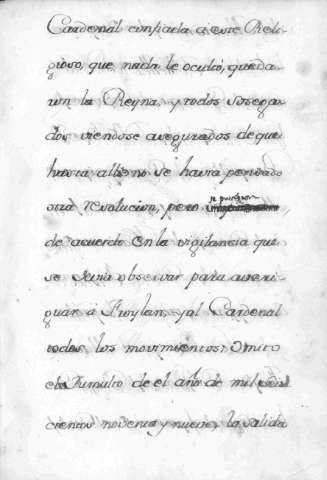 Cardenal confiarla a este Reli-
gioso, que nada le ocultó, queda-
ron la Reyna, y todos sosega-
dos viendose asegurados de que
hasta alli no se havia pensado
otra resolucion, pero se pusieron
de acuerdo en la vigilancia que
se devia observar para averi-
guar a Froylan, y al Cardenal
todos los movimientos: Omito
el Tumulto de el año de mil seis
cientos noventa y nueve, la salida